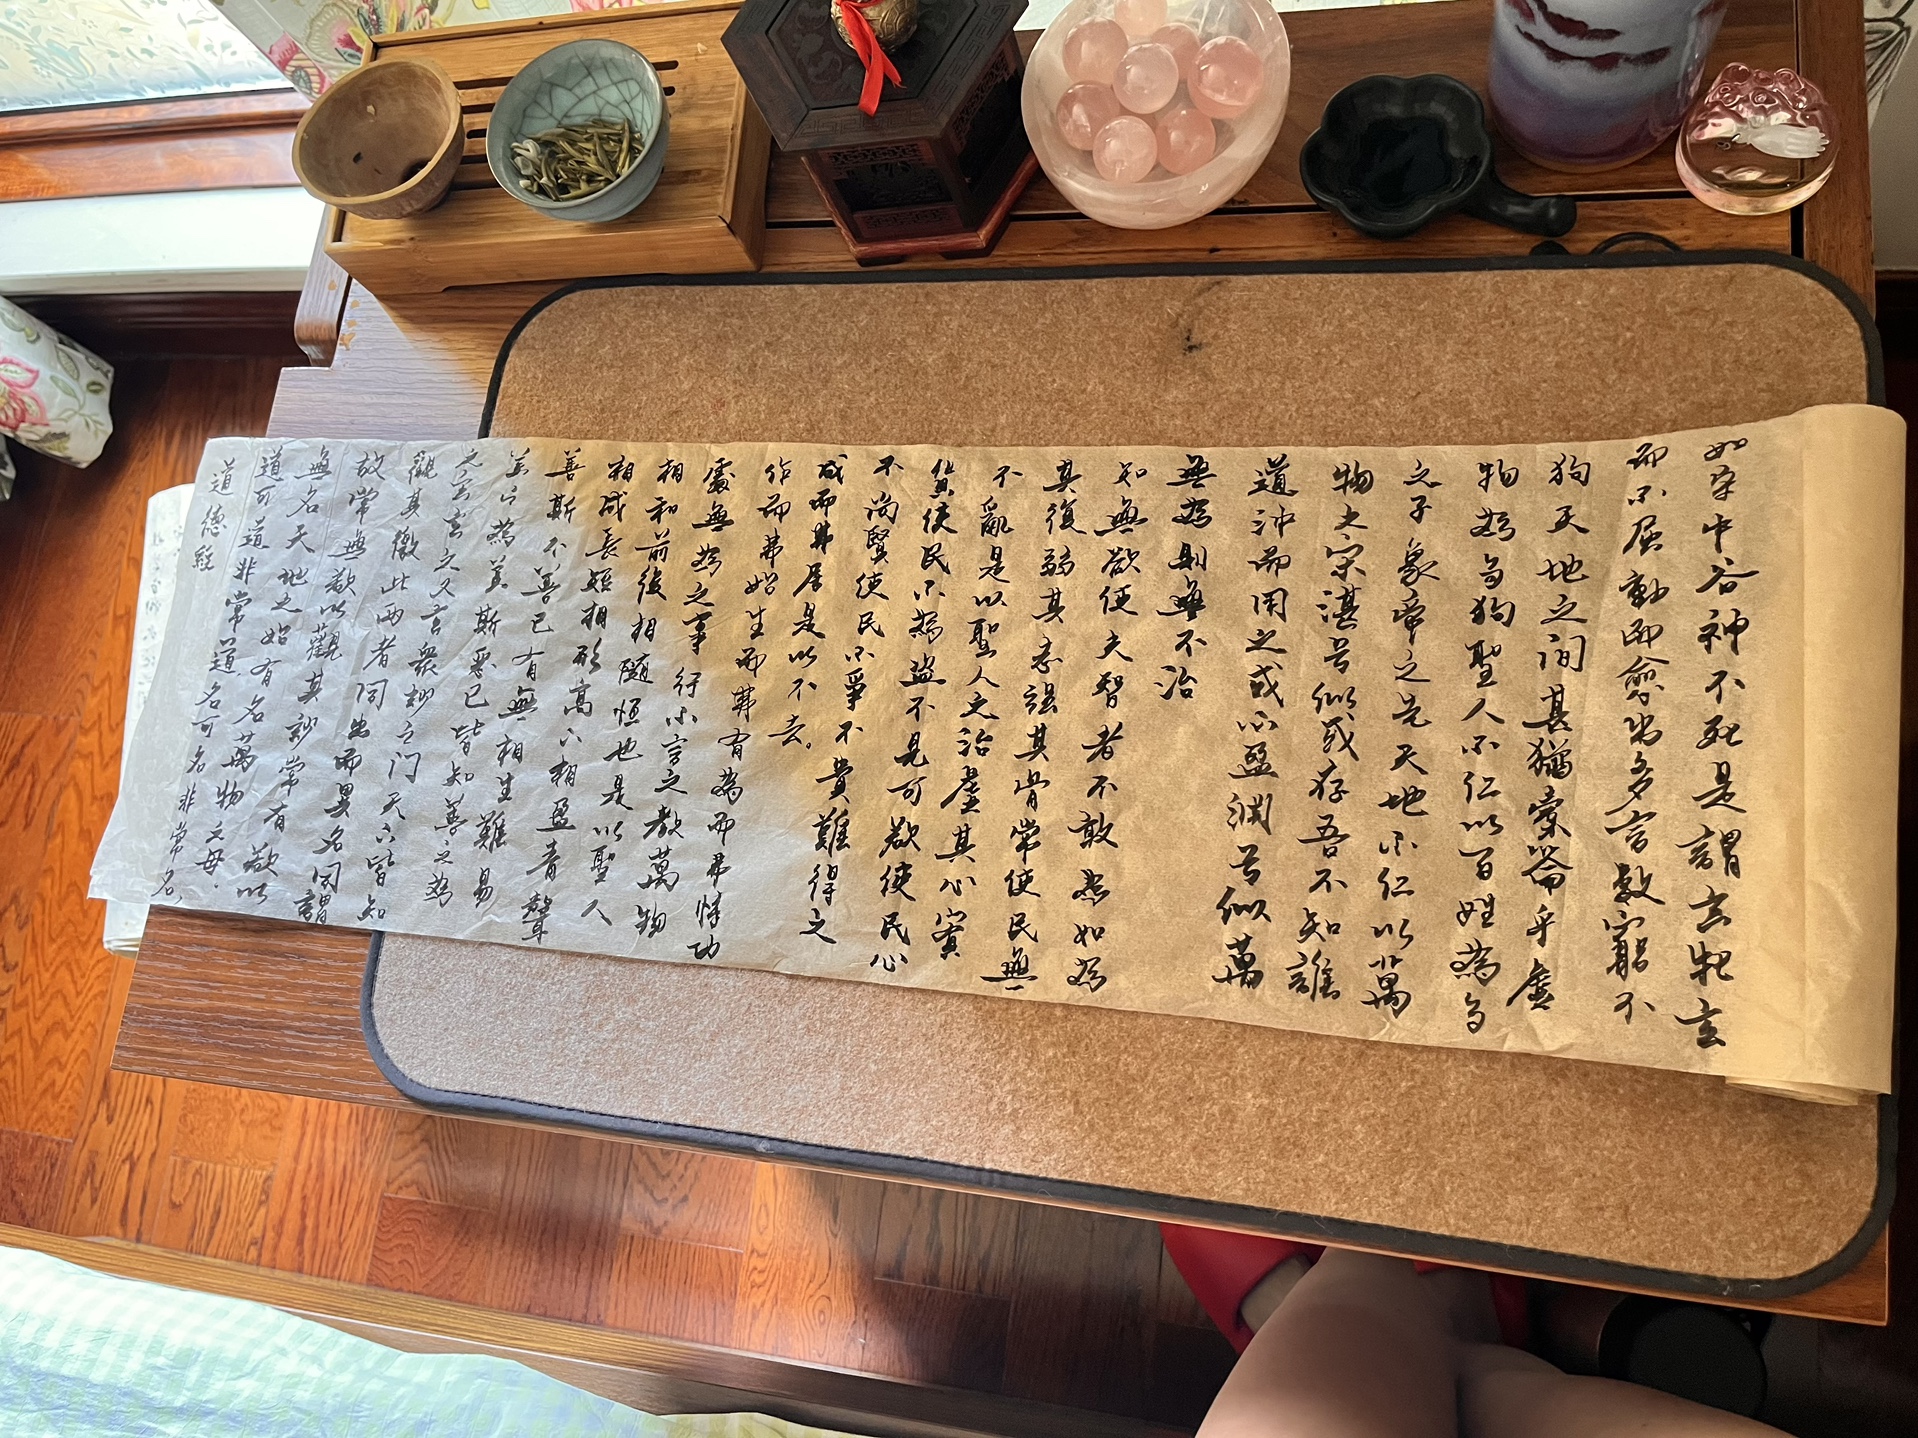 道德經
道可道非常道名可名非常名
無名天地之始有名萬物之母
故常無欲以觀其妙常有欲以
觀其徼此兩者同出而異名同謂
之玄玄之又玄衆妙之门天下皆知
美之為美斯惡已皆知善之為
善斯不善已有無相生難易
相成長短相形高下相盈音聲
相和前後相隨恒也是以聖人
處無為之事行不言之教萬物
作而弗始生而弗有為而弗恃功
成而弗居是以不去
不尚賢使民不爭不貴難得之
貨使民不為盜不見可欲使民心
不亂是以聖人之治虛其心實
其復弱其志强其骨常使民無
知無欲使夫智者不敢為如為
無為則無不治
道沖而用之或不盈渊兮似萬
物之宗湛兮似或存吾不知誰
之子象帝之先天地不仁以萬
物為刍狗聖人不仁以百姓為刍
狗天地之间其猶橐籥乎虛
而不屈動而愈出多言數窮不
如守中谷神不死是謂玄牝玄